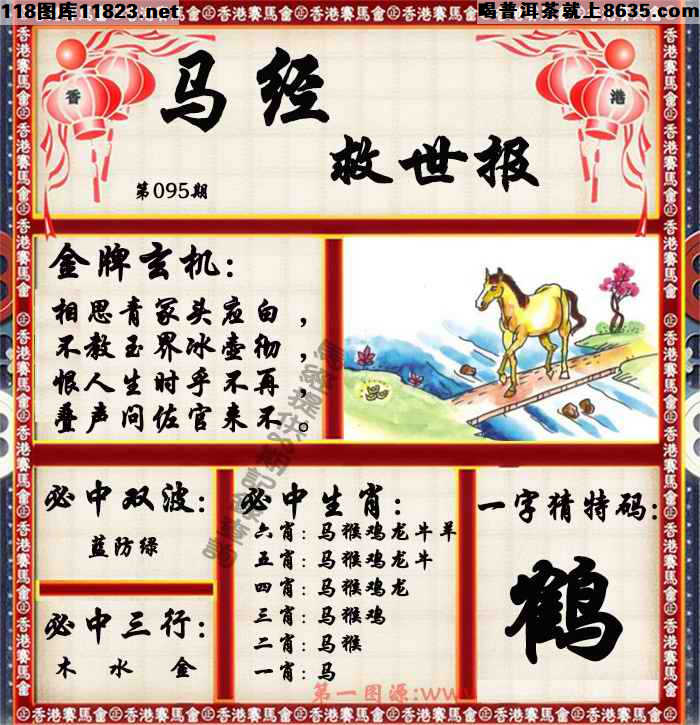 118图库11823.net
喝普洱茶就上8635.com
香
港
马经
救世报
第095期
金牌玄机：
相思青冢头应白，
不教玉界冰壶彻，
恨人生时乎不再，
叠声问佐官来不。
必中双波：
蓝防绿
必中三行：
木 水 金
必中生肖：
六肖：马猴鸡龙牛羊
五肖：马猴鸡龙牛
四肖：马猴鸡龙
三肖：马猴鸡
二肖：马猴
一肖：马
一字猜特码：
鹤
第一图源:www
香港賽馬會